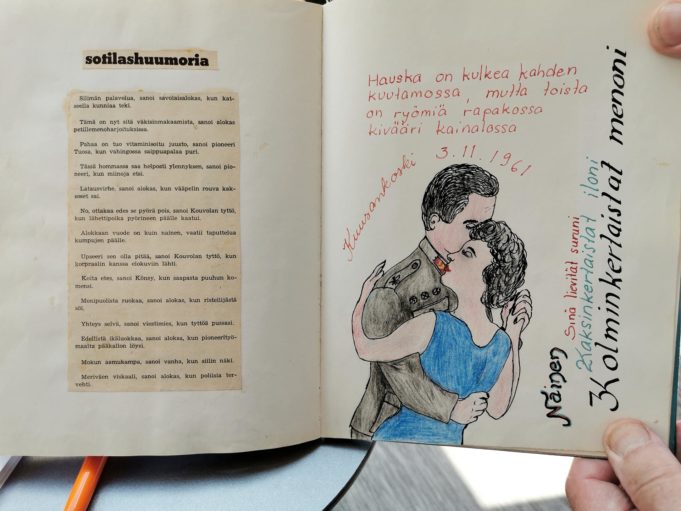 sotilashuumoria
Silmän palvelua, sanoi savolaisalokas, kun kat-
seella kunniaa teki.
Tämä on nyt sitä väkisinmakaamista, sanoi alokas
petillemenoharjoituksissa.
Pahaa on tuo vitaminisoitu juusto, sanoi pioneeri
Tuosa, kun vahingossa saippuapalaa puri.
Tässä hommassa saa helposti ylennyksen, sanoi pio-
neeri, kun miinoja etsi.
Latausvirhe, sanoi alokas, kun vääpelin rouva kak-
soset sai.
No, ottakaa edes se pyörä pois, sanoi Kouvolan tyttö,
kun lähettipoika pyörineen päälle kaatui.
Alokkaan vuode on kuin nainen, vaatii taputtelua
kumpujen päälle.
Upseeri sen olla pitää, sanoi Kouvolan tyttö, kun
korpraalin kanssa elokuviin lähti.
Keita etes, sanoi Könsy, kun saapasta puuhun ko-
mensi.
Monipuolista ruokaa, sanoi alokas, kun risteilijästä
söi.
Yhteys selvä, sanoi viestimies, kun tyttöä pussasi.
Edellistä ikäluokkaa, sanoi alokas, kun pioneerityö-
maalta pääkallon löysi.
Mokun aamukampa, sanoi vanha, kun siilin näki.
Meriväen viskaali, sanoi alokas, kun poliisia ter-
vehti.
Hauska on kulkea kahden
kuutamossa, mutta toista
on ryömiä rapakossa
kivääri kainalossa
3.11.1961
Kuusankoski
Nainen
Sinä lievität suruni
2Kaksinkertaistat iloni
3Kolminkertaistat menoni